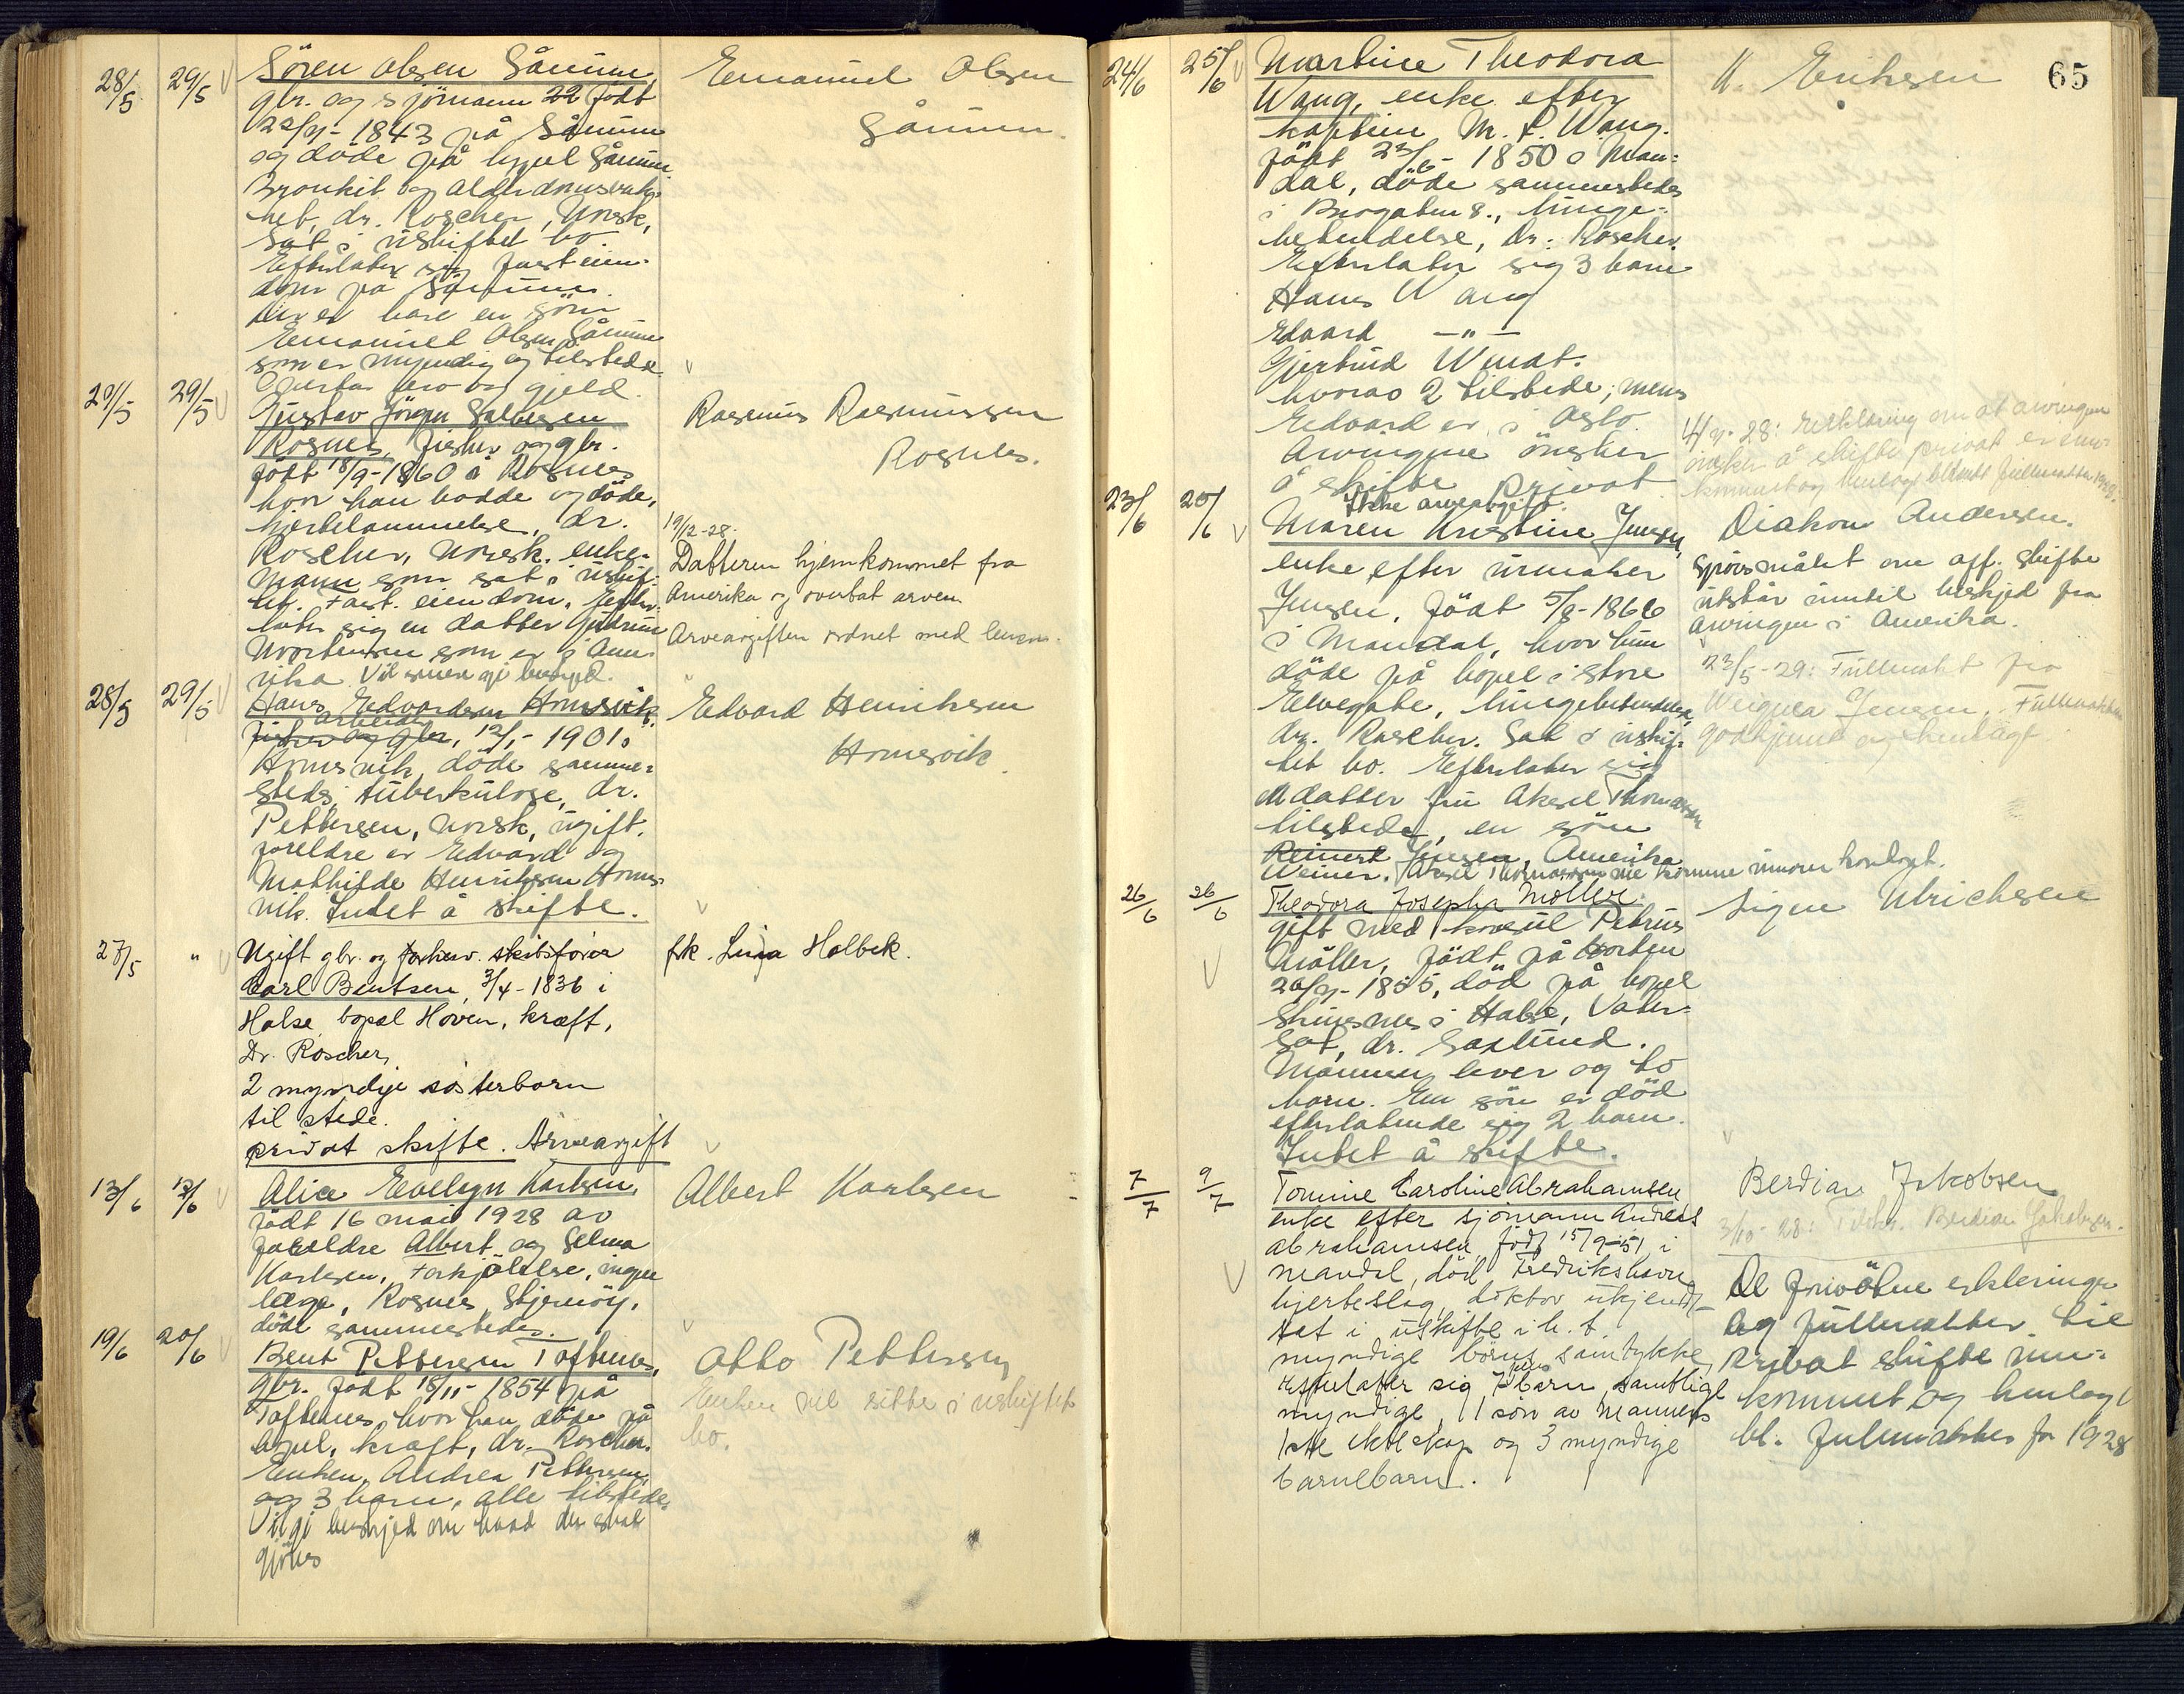 28/5 29/5 Sören Olsen Sånum,
gbr. og sjömann 22 födt
22/7-1843 på Sånum
og döde på bopel Sånum
Bronkit og alderdomssvak-
het, dr. Roscher, Norsk,
Sat i uskiftet bo.
Efterlater sig fast eien-
dom på Sånum.
Der er bare en sön
Emanuel Olsen Sånum
som er myndig og tilstede
Overtar arv og gjeld.
Emanuel Olsen
Sånum.
20/5 29/5 Gustav Jörgen Salvesen
Rosnes, fisker og gbr.
födt 18/9-1860 å Rosnes
hvor han bodde og döde,
hjertelammelse, dr.
Roscher, Norsk, enke-
mann som sat i uskif-
tet. Fast. eiendom. Efter-
later sig en datter Gudrun
Mortensen som er i Ame-
rika. Vil senere gi beskjed.
Rasmus Rasmussen
Rosnes.
19/12-28.
Datteren hjemkommet fra
Amerika og overtat arven.
Arveavgiften ordnet med lensm.
28/5 29/5 Hans Edvardsen Homsvik,
arbeider
fisker og gbr, 12/1-1901 å
Homsvik, döde samme-
steds, tuberkulose, dr.
Pettersen, norsk, ugift.
foreldre er Edvard og
Mathilde Henriksen Homs-
vik. Intet å skifte.
Edvard Henriksen
Homsvik.
27/5 " Ugift gbr. og forhenv. skibsförer
Carl Bentsen, 3/4-1836 i
Halse, bopæl Hoven, kræft,
Dr. Roscher,
2 myndige sösterbarn
til stede.
privat skifte. Arveavgift
frk. Lina Holbek.
13/6 13/6 Alice Evelyn Karlsen,
födt 16 mai 1928 av
foreldre Albert og Selma
Karlsen, Forkjölelse, ingen
læge, Rosnes, Skjernöy,
döde sammestedes.
Albert Karlsen
19/6 20/6 Bent Pettersen Toftenes,
gbr. födt 18/11-1854 på
Toftenes, hvor han döde på
bopel, kræft, dr. Roscher.
Enken Andrea Pettersen
og 3 barn, alle tilstede.
Vil gi beskjed om hvad der skal
gjöres
Otto Pettersen
Enken vil sitte i uskiftet
bo.
65
24/6 25/6 Martine Theodora
Wang, enke efter
kaptein M. P. Wang.
födt 23/6-1850 i Man-
dal, döde sammestedes
i Brogaten 8., lunge-
betendelse, dr. Roscher.
Efterlater sig 3 barn
Hans Wang
Edvard —"—
Gjertrud
hvorav 2 tilstede, mens
Edvard er i Oslo.
Arvingene önsker
å skifte privat
Ikke arveavgift.
K. Eriksen
4/7-28: Erklæring om at arvingene
önsker å skifte privat er inn-
kommet og henlagt blandt fullmakter 1928.
23/6 25/6 Maren Kristine Jensen,
enke efter urmaker
Jensen, födt 5/8-1866
i Mandal, hvor hun
döde på bopel i store
Elvegate, lungebetendelse,
dr. Roscher. Sat i uskif-
tet bo. Efterlater sig
datter fru Aksel Thomassen
tilstede, en sön
Reinert Jensen, Amerika
Weiner. Aksel Thomassen vil komme innom kontoret.
Diakon Andersen.
Spörsmålet om off. skifte
utstår inntil beskjed fra
arvingen i Amerika.
23/5-29: Fullmakt fra
Jensen. Fullmakten
godkjennt og henlagt
26/6 26/6 Theodora Josepha Möller
gift med konsul Petrus
Möller, födt på Horten
20/7-1855, död på bopel
Skinsnes i Halse, Vater-
sot, dr. Saxlund.
Mannen lever og to
barn. En sön er död
efterlatende sig 2 barn.
Intet å skifte.
Signe Ulrichsen
7/7 9/7 Tomine Caroline Abrahamsen
enke efter sjömann Andreas
Abrahamsen, född 15/9-51 i
Mandal, död Fredrikshavn,
hjerteslag, doktor ukjendt
sat i uskifte i h. t.
myndige börns samtykke,
efterlater sig 7 barn, samtlige
myndige, 1 sön av mannens
1ste ekteskap og 3 myndige
barnebarn.
Berdian Jakobsen
3/10-28: Berdian Jakobsen.
De fornödne erkleringer
og fullmakter til
privat skifte inn-
kommet og henlagt
bl. fullmakter for 1928